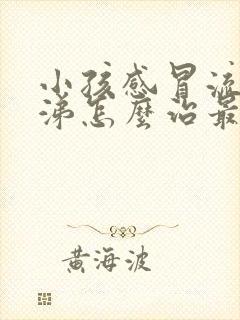 小孩感冒流
涕怎麼治最
黄海波